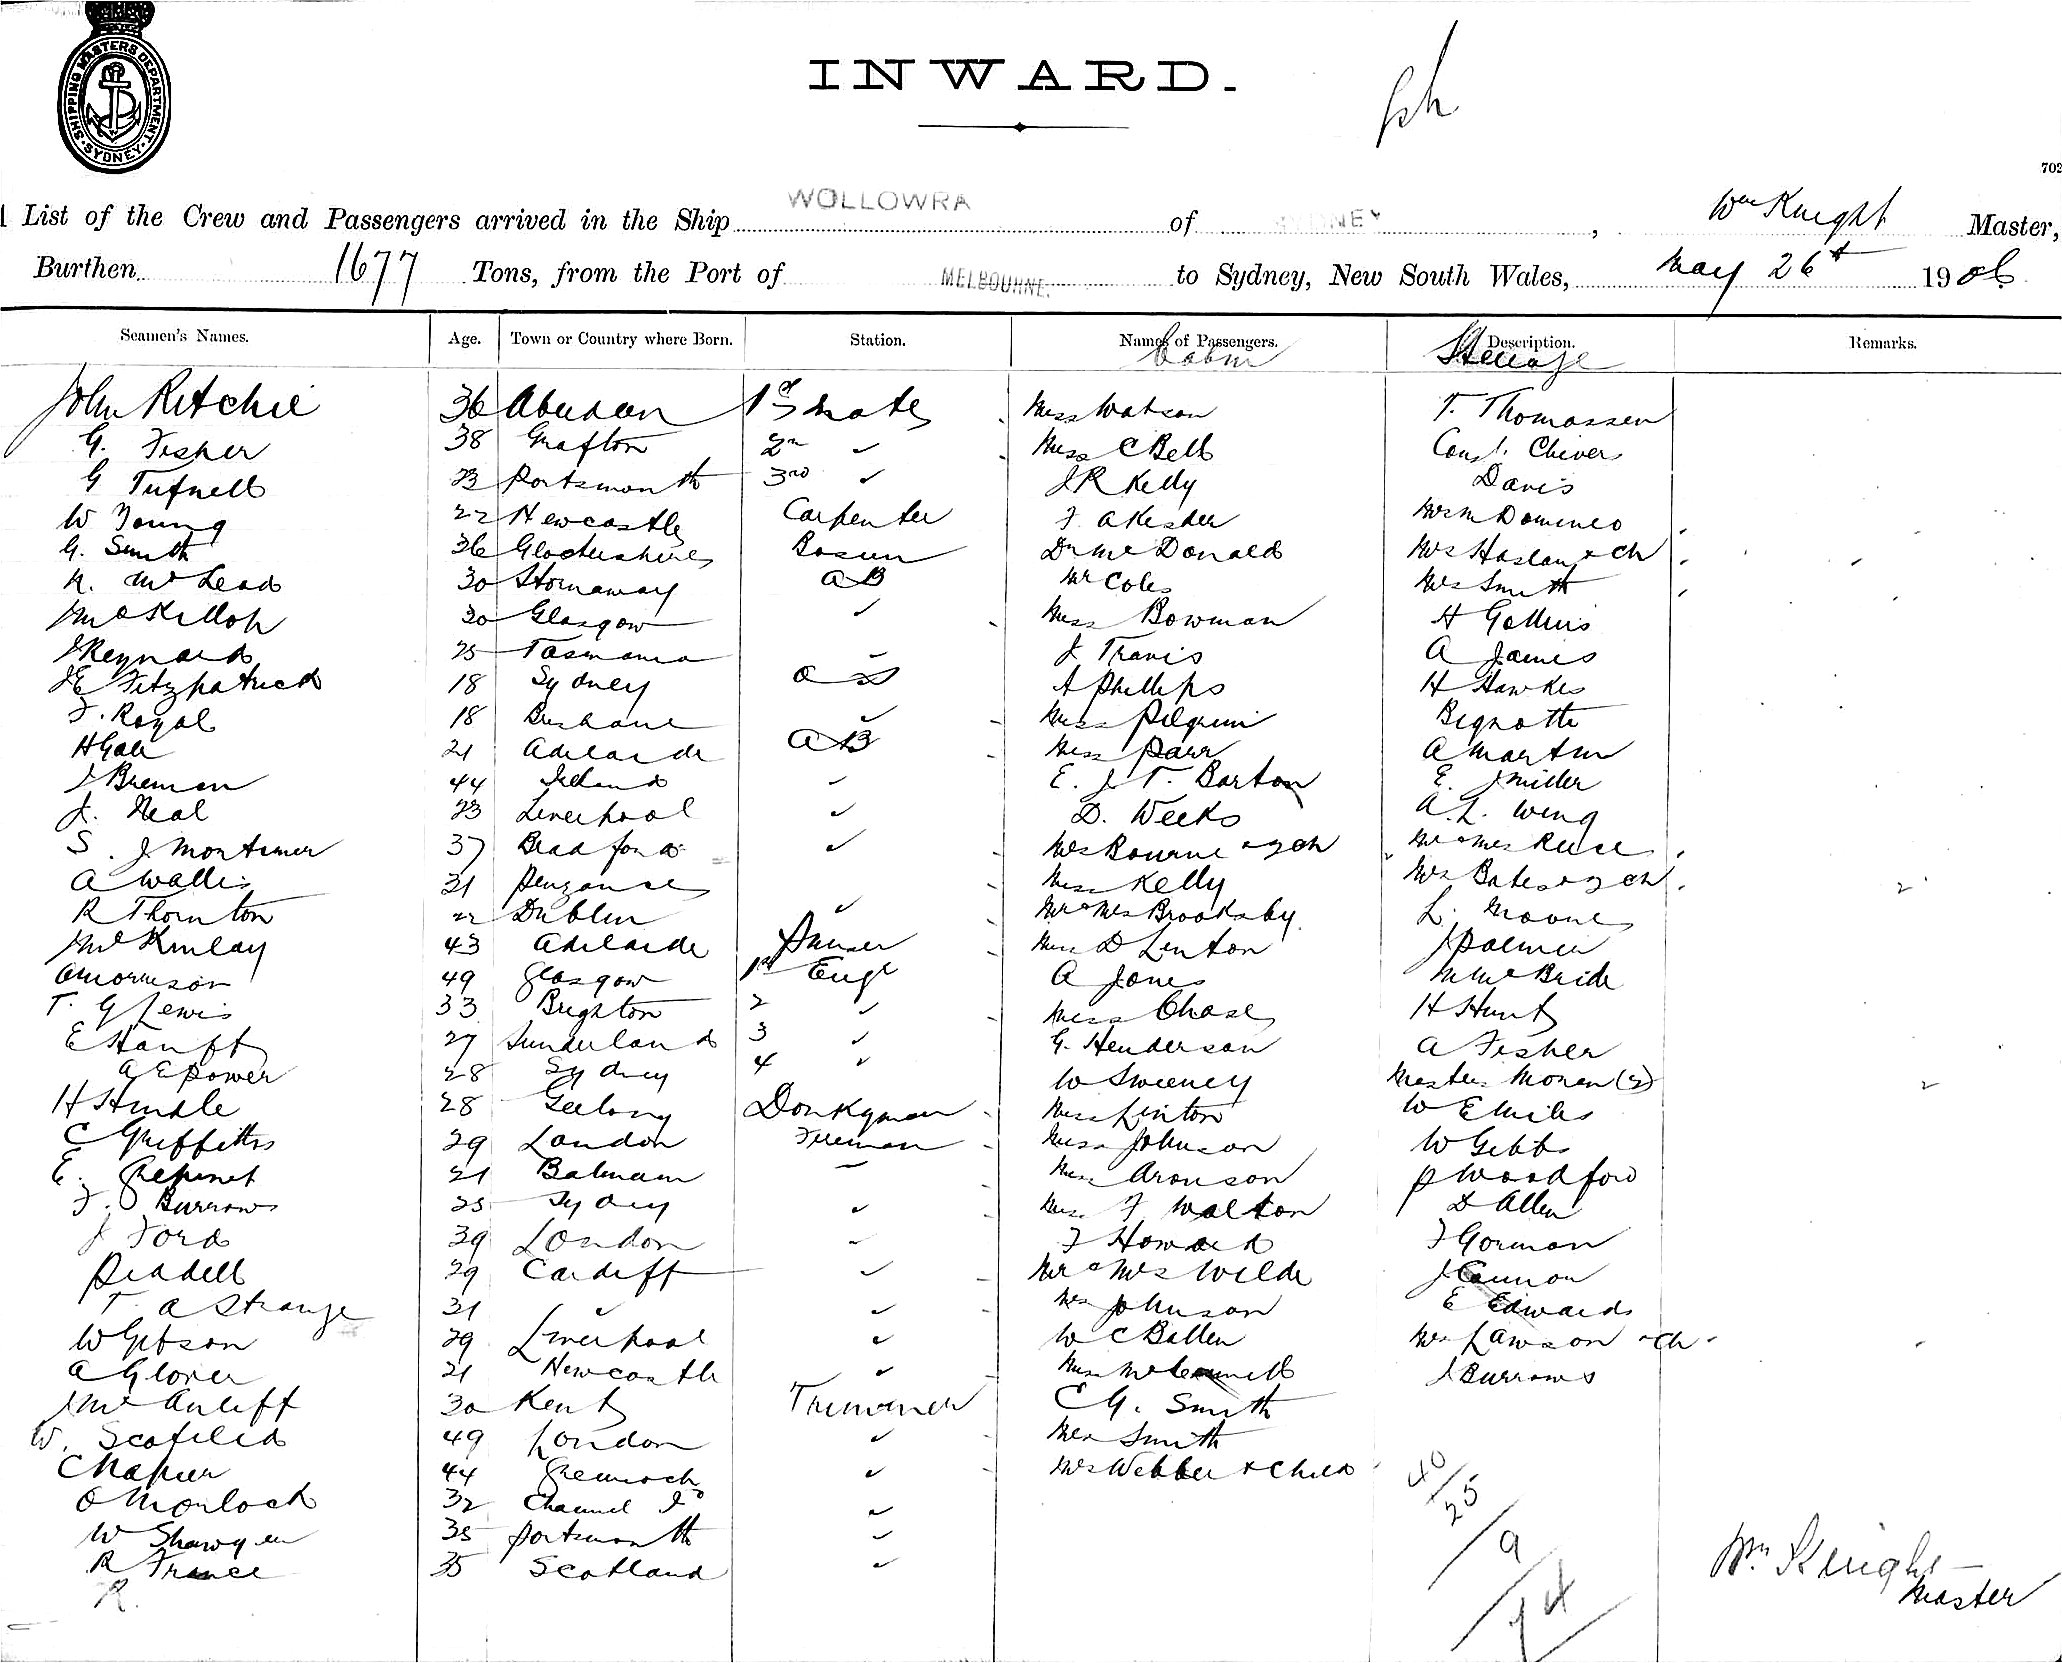 SHIPPING MASTERS DEPARTMENT. SYDNEY.
INWARD.
702
List of the Crew and Passengers arrived in the Ship WOLLOWRA of SYDNEY, Wm Knight Master,
Burthen 1677 Tons, from the Port of MELBOURNE. to Sydney, New South Wales, May 26th 1906
Seamen's Names. Age. Town or Country where Born. Station. Names of Passengers. Description. Remarks.
Cabin Steerage
John Ritchie 36 Aberdeen 1st Mate Miss Watson T. Thomassen
G. Fisher 38 Grafton 2nd ✓ Miss C Bell Const. Chiver
G Tufnell 23 Portsmouth 3rd ✓ J R Kelly Davis
W Young 22 Newcastle Carpenter F Akester Domineo
G. Smith 36 Glostershire Bosun Dr McDonald Mrs Haslam + Ch
N. McLeod 30 Stornaway AB Mr Coles Mrs Smith
McKillop 30 Glasgow ✓ Miss Bowman H Gollins
J Reynards 25 Tasmania J Travis A James
J E Fitzpatrick 18 Sydney OS A Phillips H Hawkes
F. Royal 18 Brisbane ✓ Miss Pilgrim Bignotti
H Gale 21 Adelaide AB Miss Parr A Martin
J Brennan 44 Ireland E. J T. Barton E. J Miller
J. Neal 23 Liverpool ✓ D. Weeks A. L. Wing
S. J Mortimer 37 Bradford ✓ Mrs Bourne + 2 ch Mr & Mrs Reece
A Wallis 31 Penzance Miss Kelly Mrs Bates + 2 ch 2
R Thornton 22 Dublin ✓ Mr & Mrs Brooksby L. Moore
McKinlay 43 Adelaide Purser Miss D Linton J Palmer
A Morrison 49 Glasgow 1st Engr A Jones M McBride
T. G Lewis 33 Brighton 2 ✓ Miss Chase H Hunt
E Hanft 27 Sunderland 3 ✓ G. Henderson A Fisher
A E Power 28 Sydney 4 ✓ W Sweeney Masters Moran (2) 2
H Hindle 28 Geelong Donkyman Miss Linton W E Miles
C Griffiths 29 London Fireman Miss Johnson W Gibbs
E. 21 Balmain Miss Aronson P Woodford
F. Burrows 25 Sydney ✓ Miss F Walton D Allen
J Ford 39 London F Howard F Gorman
Peddell 29 Cardiff ✓ Mr & Mrs Wilde J Cannon
T A Strange 31 ✓ ✓ Mrs Johnson E Edwards
W Gibson 29 Liverpool ✓ W C Ballen Mrs Lawson + Ch
A Glover 21 Newcastle ✓ Miss J Burrows
J McAuliff 30 Kent Trimmer C G. Smith
W. Scofield 49 London ✓ Mrs Smith
C Napier 44 Greenock ✓ Mrs Webber + Child
O Morlock 32 Channel Is ✓
W 35 Portsmouth ✓
R France 35 Scotland ✓
R.
40
25
9
74
Wm Knight
Master